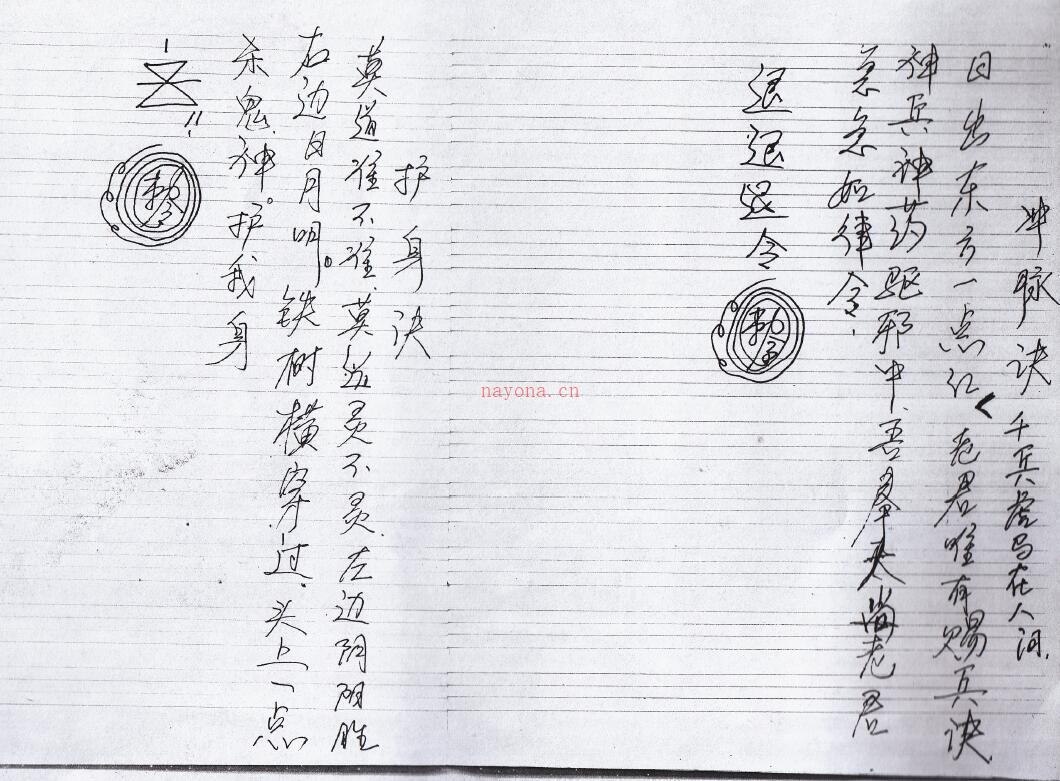 冲脉诀
千兵虎马在人间.
日出东方一点红
老君唯有赐兵诀
神兵神药驱邪中.吾奉太尚老君
急急如律令.
退退退令
敕令
护身诀
莫道准不准.莫道灵不灵.左边阴阴胜
右边日月明。铁树横穿过.头上一点
杀鬼神。护我身
敕令
nayona.cn